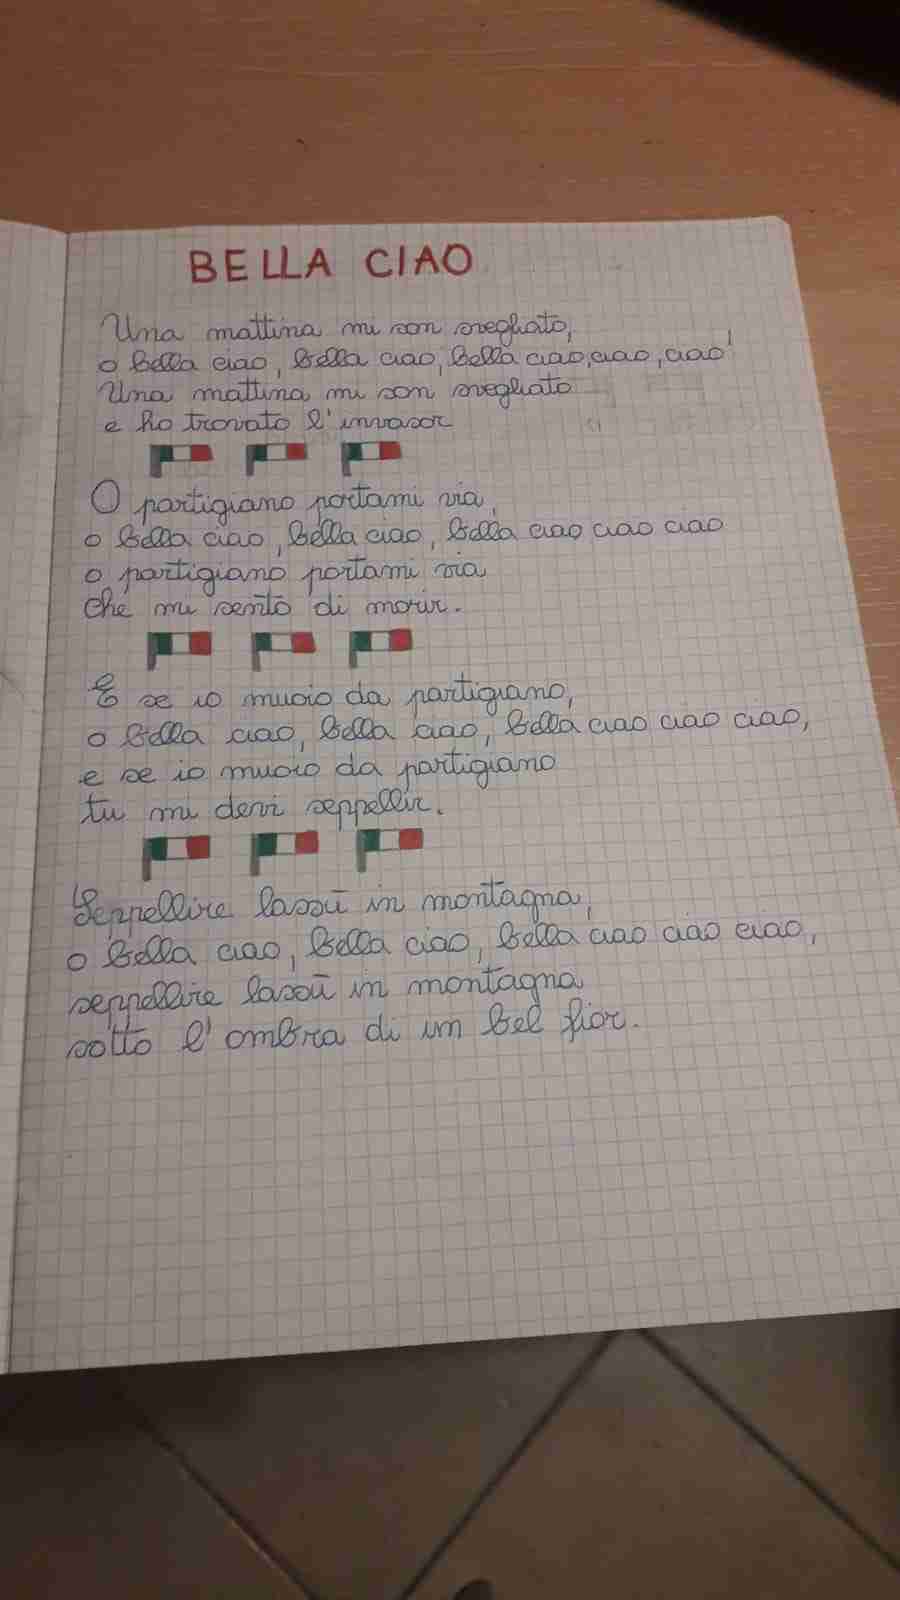 BELLA CIAO
Una mattina mi son svegliato,
o bella ciao, bella ciao, bella ciao, ciao, ciao!
Una mattina mi son svegliato
e ho trovato l'invasor
O partigiano portami via,
o bella ciao, bella ciao, bella ciao ciao ciao
o partigiano portami via
che mi sento di morir.
E se io muoio da partigiano,
o bella ciao, bella ciao, bella ciao ciao ciao,
e se io muoio da partigiano
tu mi devi seppellir.
Seppellire lassù in montagna,
o bella ciao, bella ciao, bella ciao ciao ciao,
seppellire lassù in montagna
sotto l'ombra di un bel fior.